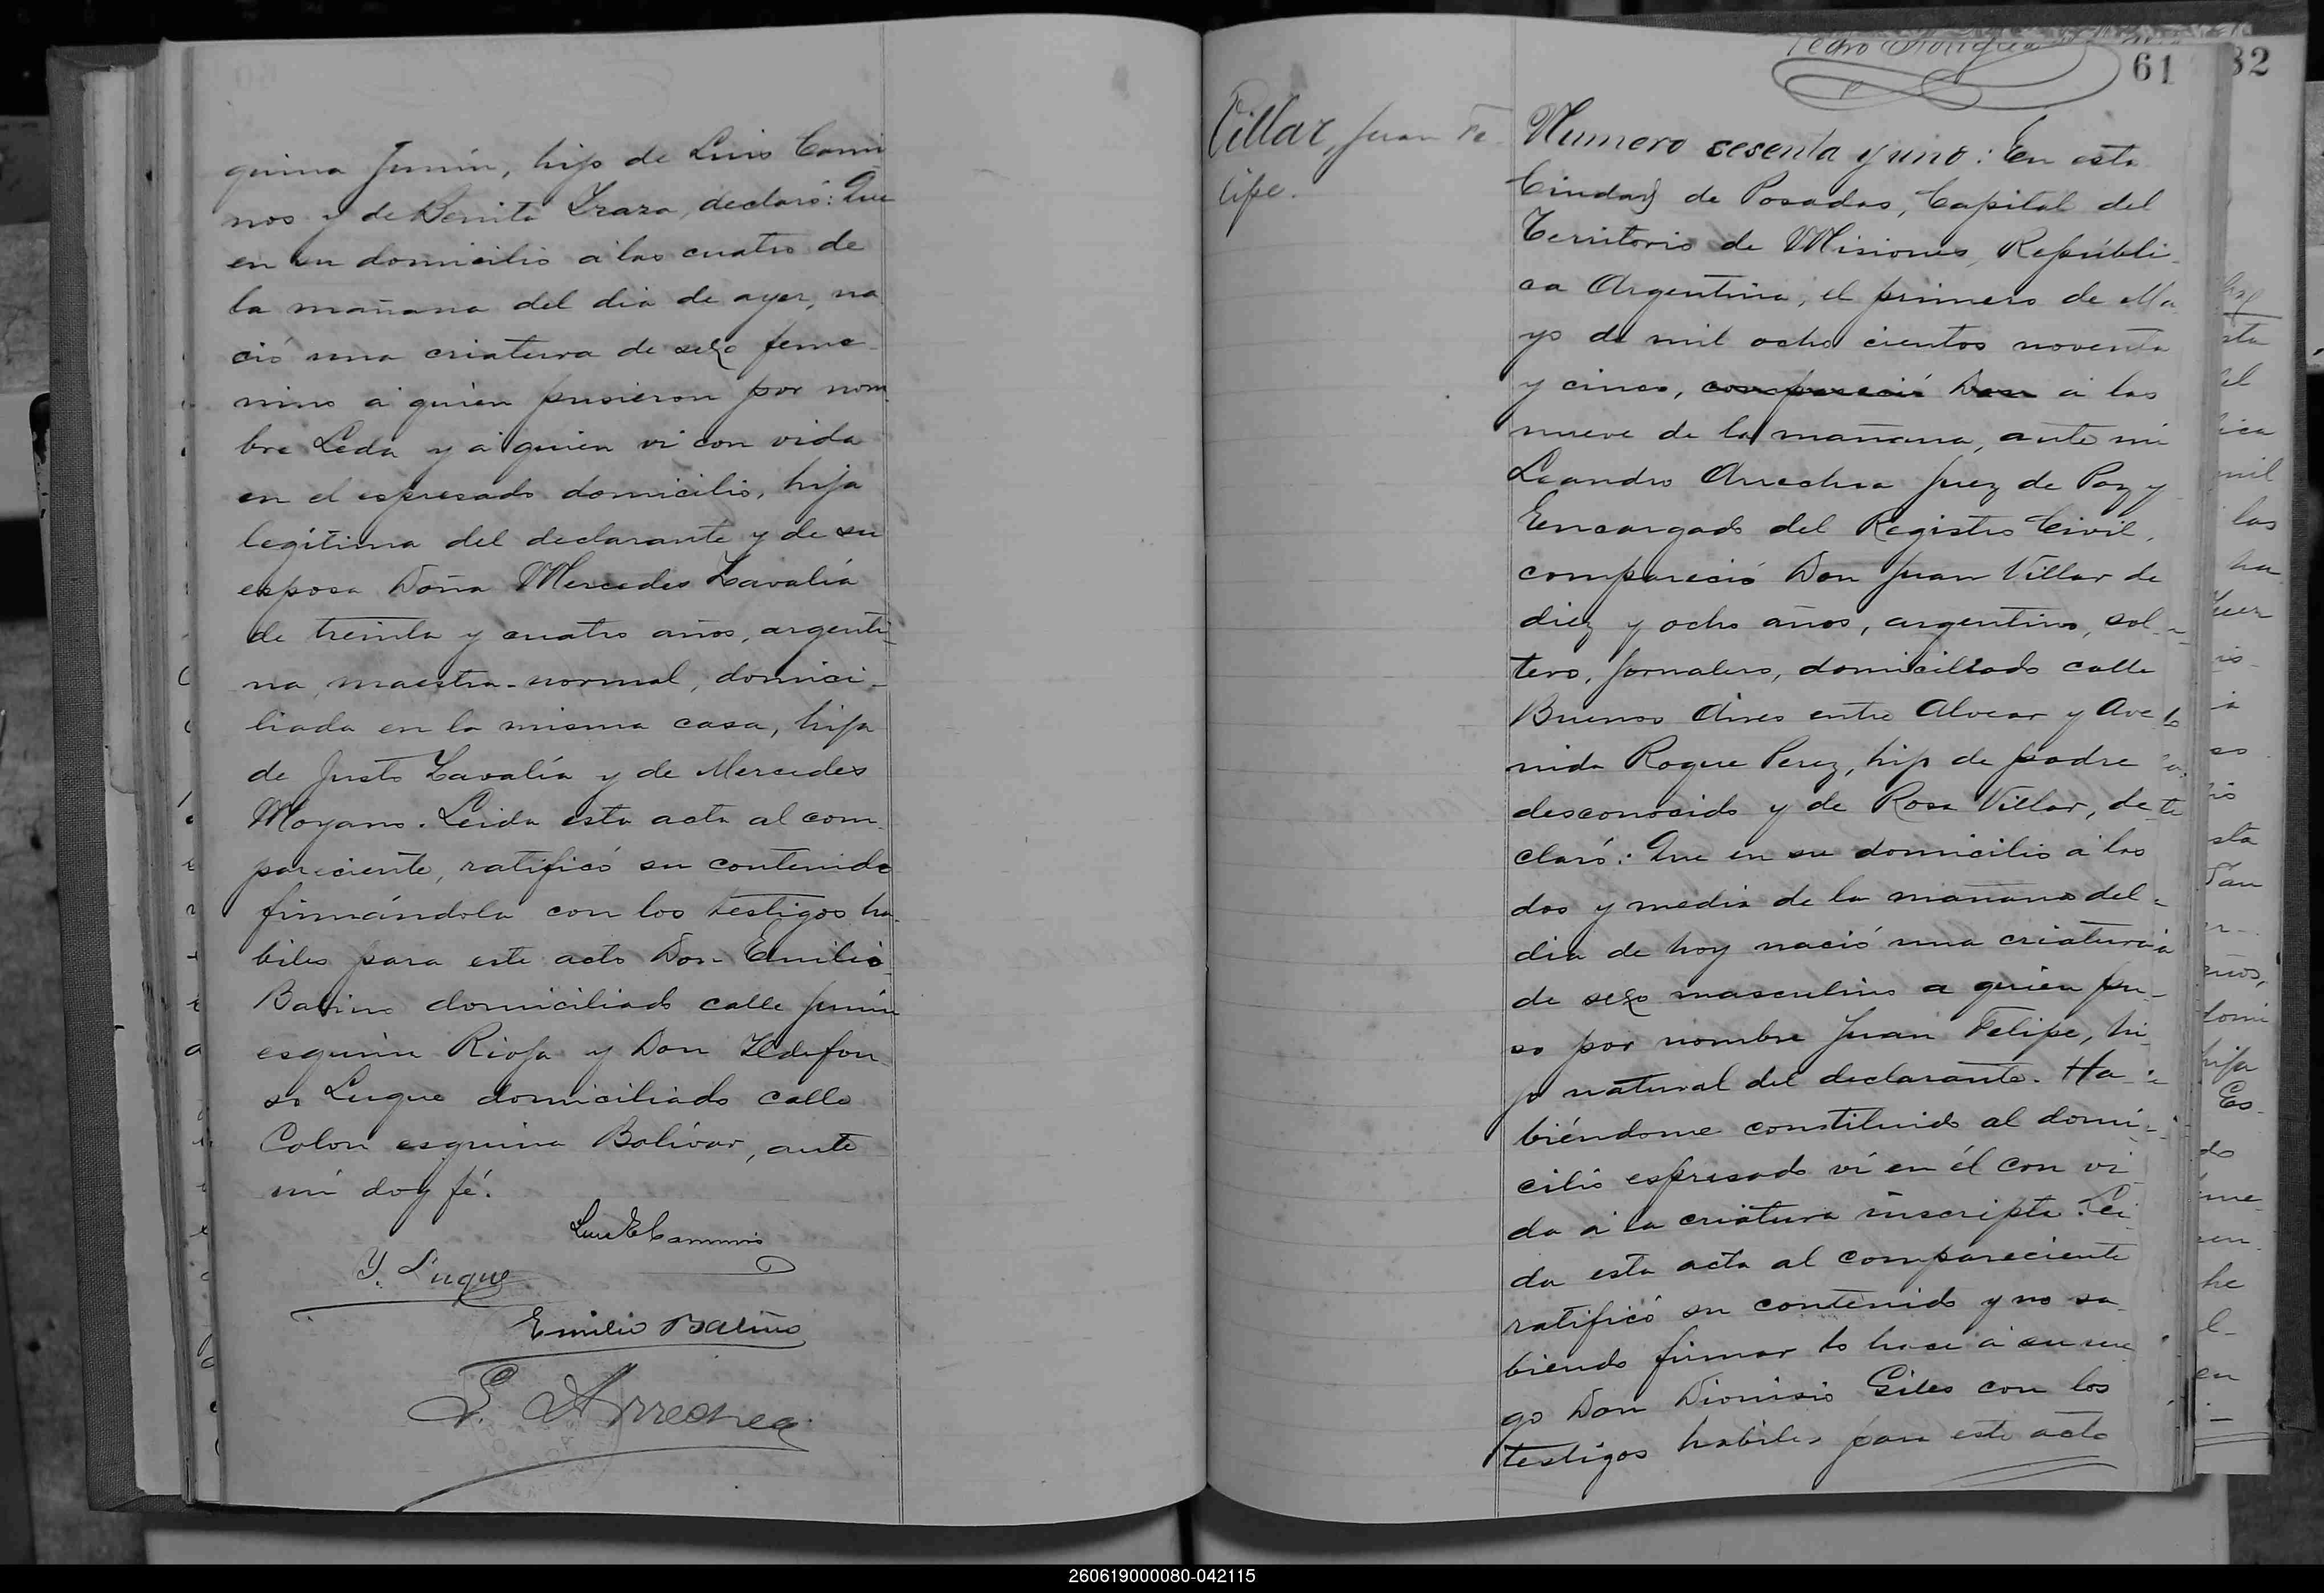 quina Junín, hijo de Luis Cami
nos y de Benita Zraza, declaró: Que
en su domicilio á las cuatro de
la mañana del dia de ayer, na
ció una criatura de sexo feme
nino á quien pusieron por nom
bre Leda y á quien vi con vida
en el espresado domicilio, hija
legítima del declarante y de su
esposa Doña Mercedes Lavalía
de treinta y cuatro años, argenti
na, maestra normal, domici-
liada en la misma casa, hija
de Justo Lavalía y de Mercedes
Moyano. Leida esta acta al com
pareciente, ratificó su contenido
firmándola con los testigos ha-
biles para este acto Don Emilio
Baliño domiciliado calle Junín
esquina Rioja y Don Ildefon
so Luque domiciliado calle
Colon esquina Bolívar, ante
mí doy fé.
Luis E Caminos
Y. Luque
Emilio Baliño
L. Arrechea
61
82
Villar, Juan Fe
lipe.
Numero sesenta y uno: En esta
Ciudad de Posadas, Capital del
Territorio de Misiones, Repúbli-
ca Argentina, el primero de Ma
yo de mil ocho cientos noventa
y cinco, compareció Don á las
nueve de la mañana, ante mi
Leandro Arrechea Juez de Paz y
Encargado del Registro Civil,
compareció Don Juan Villar de
diez y ocho años, argentino, sol-
tero, jornalero, domiciliado calle
Buenos Aires entre Alvear y Ave
nida Roque Perez, hijo de padre
desconocido y de Rosa Villar, de
claró: Que en su domicilio á las
dos y media de la mañana del
dia de hoy nació una criatura
de sexo masculino a quien pu-
so por nombre Juan Felipe, hi-
jo natural del declarante. Ha-
biéndome constituido al domi-
cilio espresado ví en él con vi-
da á la criatura inscripta. Lei-
da esta acta al compareciente
ratificó su contenido y no sa-
biendo firmar lo hace á su rue
go Don Dionisio Giles con los
testigos habiles para este acto
260619000080-042115